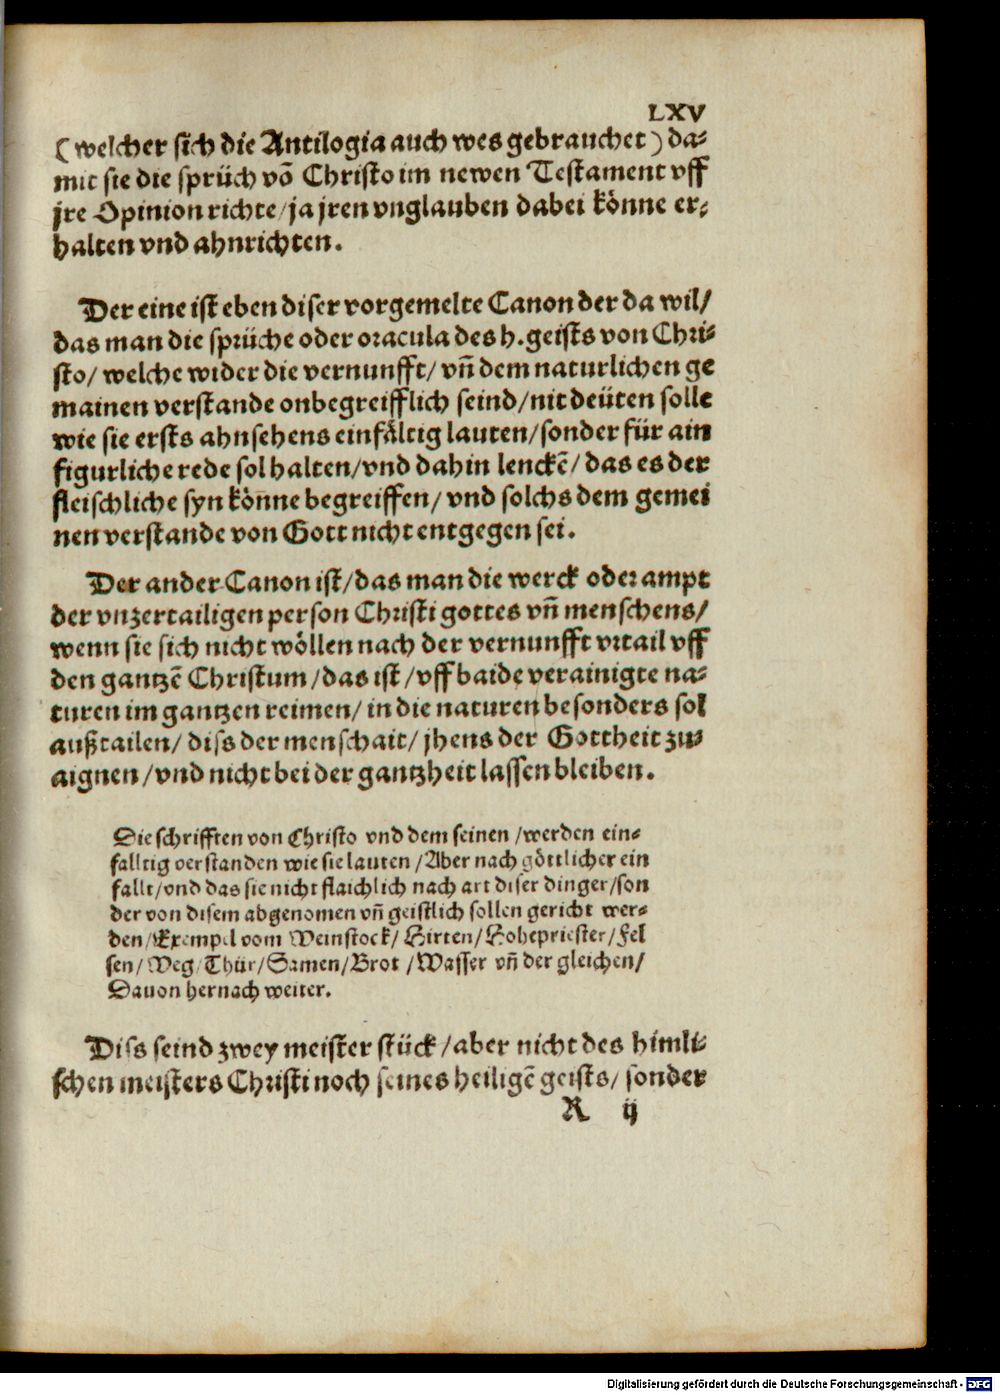 LXV
(welcher sich die Antilogia auch wes gebrauchet) da⸗
mit sie die sprüch võ Christo im newen Testament vff
jre Opinion richte/ja jren vnglauben dabei könne er⸗
halten vnd ahnrichten.
Der eine ist eben diser vorgemelte Canon der da wil/
das man die sprüche oder oracula des h. geists von Chri⸗
sto/ welche wider die vernunfft/ vñ dem naturlichen ge
mainen verstande onbegreifflich seind/nit deüten solle
wie sie ersts ahnsehens einfältig lauten/sonder für ain
figurliche rede sol halten/vnd dahin lenckẽ/ das es der
fleischliche syn könne begreiffen/ vnd solchs dem gemei
nen verstande von Gott nicht entgegen sei.
Der ander Canon ist/das man die werck oder ampt
der vnzertailigen person Christi gottes vñ menschens/
wenn sie sich nicht wöllen nach der vernunfft vrtail vff
den gantzẽ Christum/das ist/vff baide verainigte na⸗
turen im gantzen reimen/ in die naturen besonders sol
außtailen/ diss der menschait/ jhens der Gottheit zu⸗
aignen/vnd nicht bei der gantzheit lassen bleiben.
Die schrifften von Christo vnd dem seinen/werden ein⸗
falltig verstanden wie sie lauten/Aber nach göttlicher ein
fallt/vnd das sie nicht flaichlich nach art diser dinger/son
der von disem abgenomen vñ geistlich sollen gericht wer⸗
den/Exempel vom Weinstock/ Hirten/Hohepriester/Fel
sen/Weg/Thür/Samen/Brot/Wasser vñ der gleichen/
Dauon hernach weiter.
Diss seind zwey meister stück/aber nicht des himli⸗
schen meisters Christi noch seines heiligẽ geists/ sonder
R ij
Digitalisierung gefördert durch die Deutsche Forschungsgemeinschaft - DFG